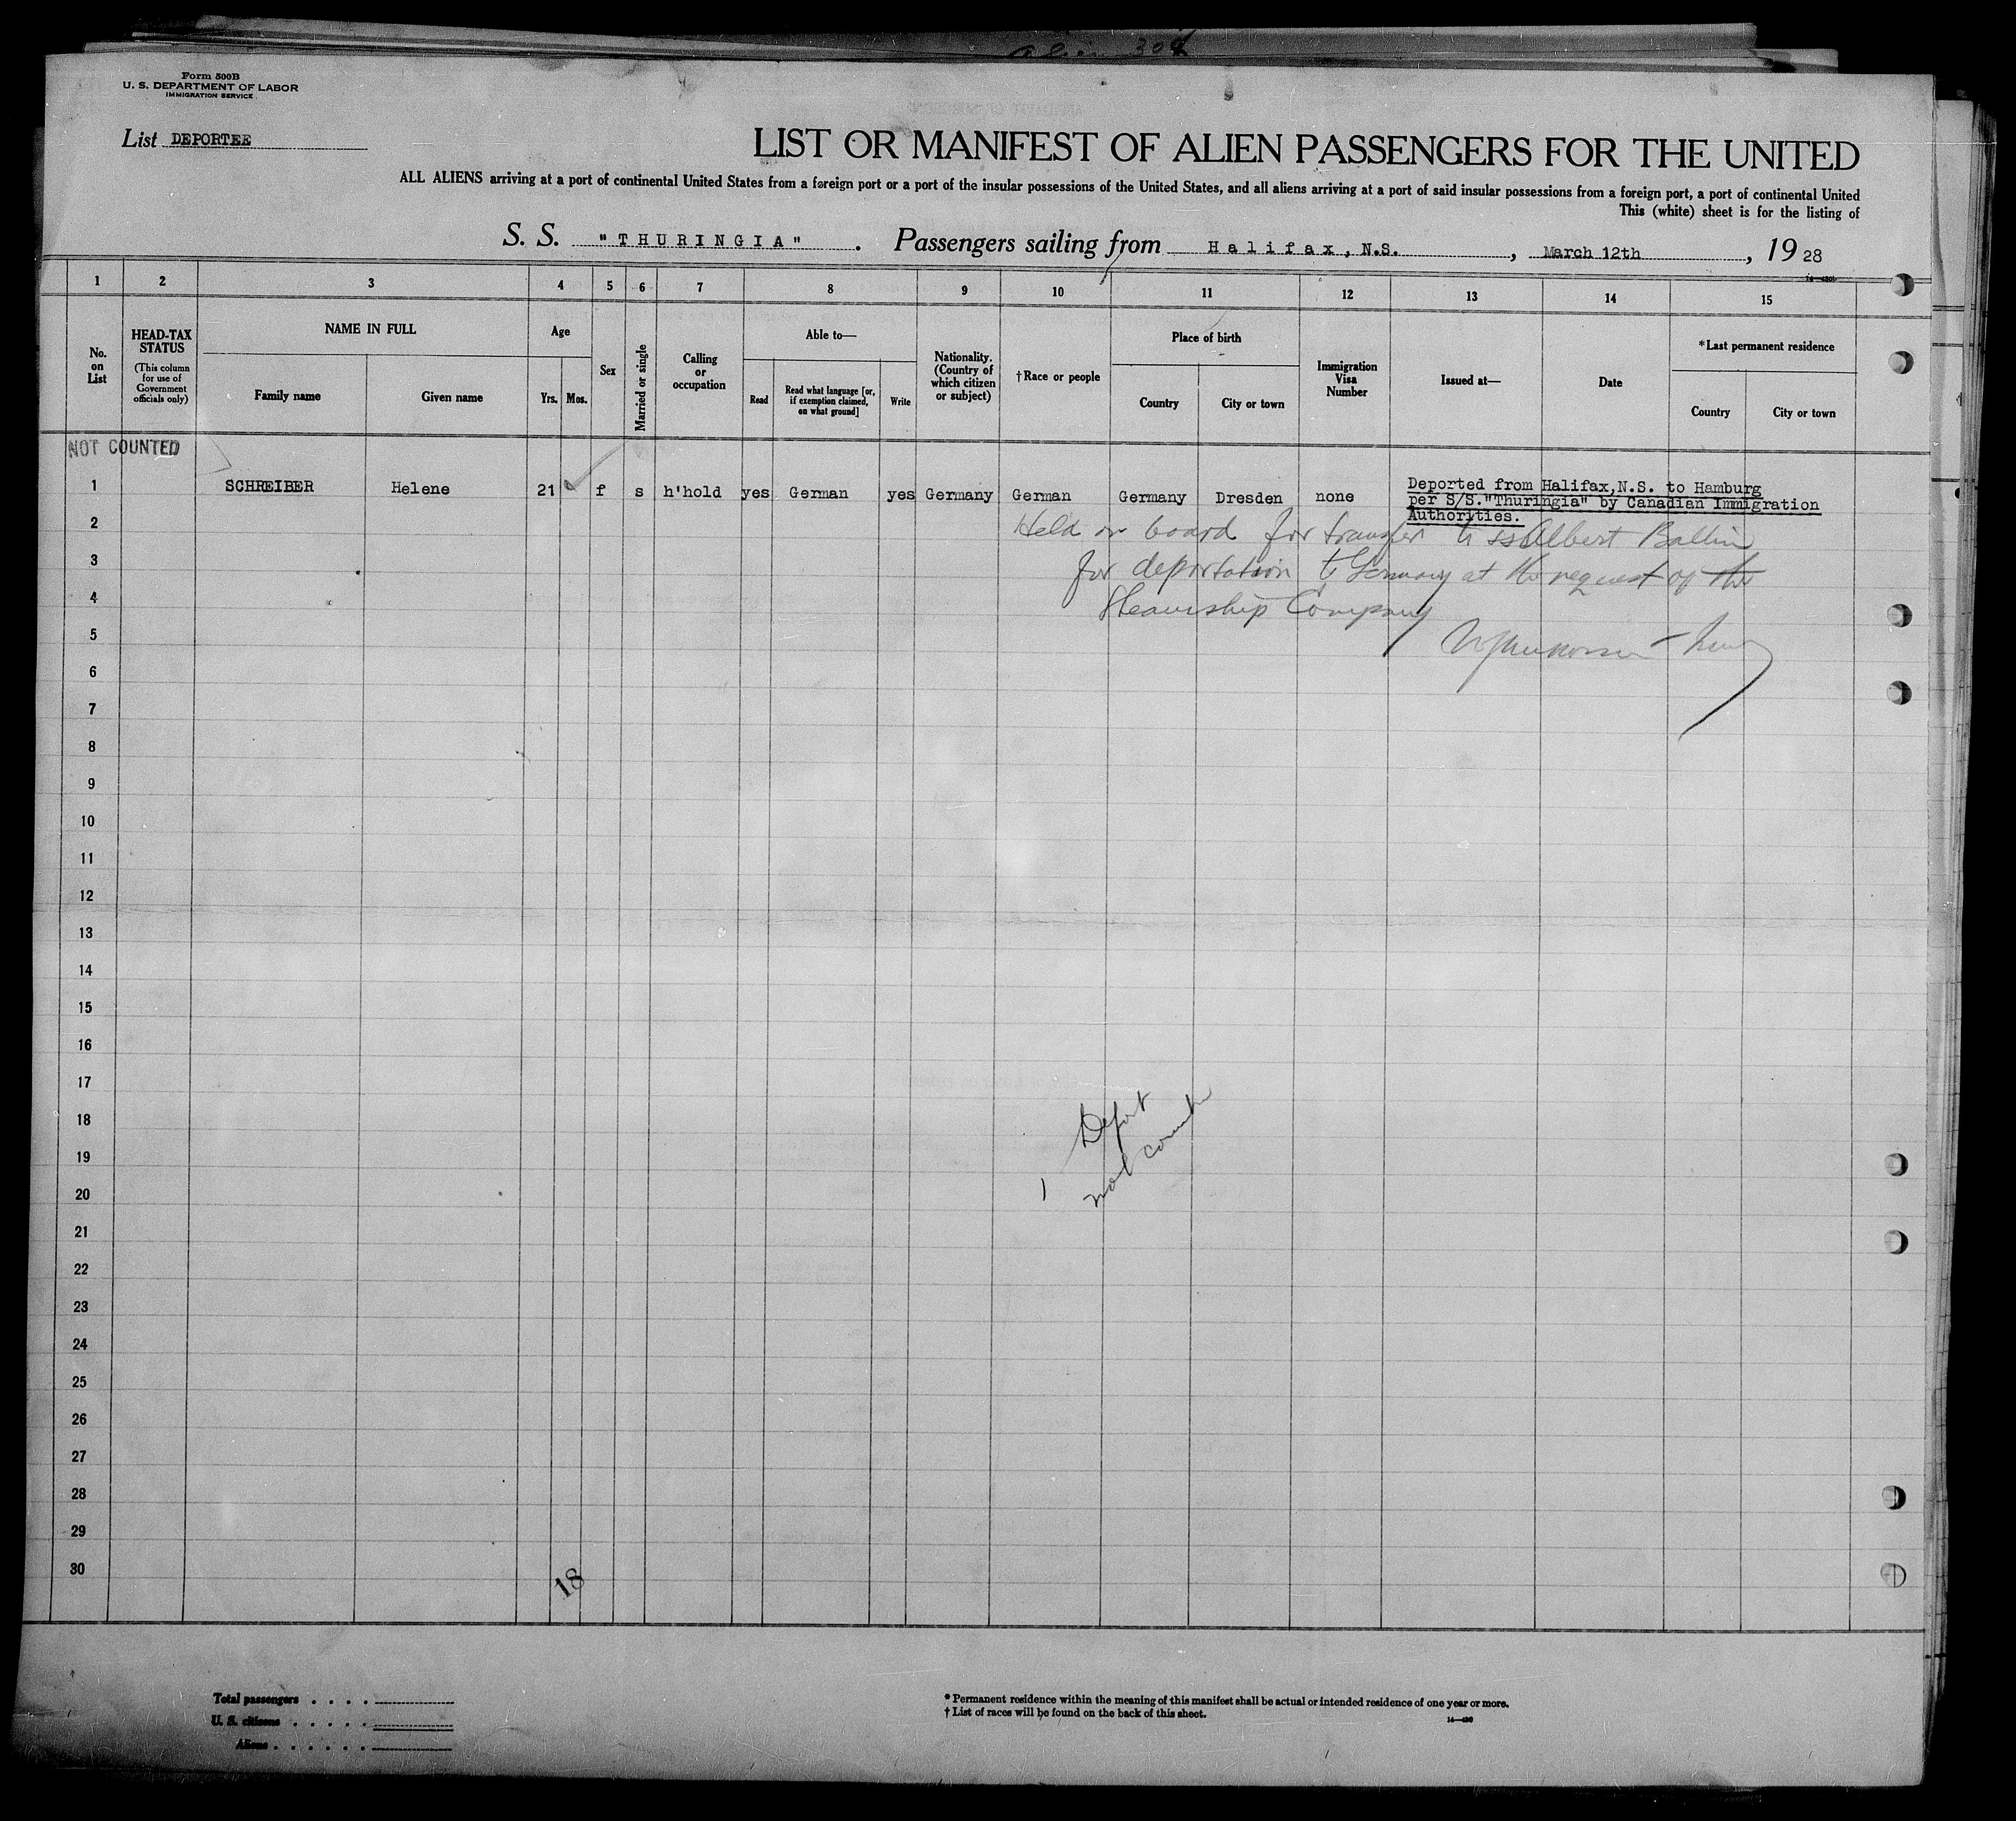 Alien 30
Form 500B
U. S. DEPARTMENT OF LABOR
IMMIGRATION SERVICE
List DEPORTEE
LIST OR MANIFEST OF ALIEN PASSENGERS FOR THE UNITED
ALL ALIENS arriving at a port of continental United States from a foreign port or a port of the insular possessions of the United States, and all aliens arriving at a port of said insular possessions from a foreign port, a port of continental United
This (white) sheet is for the listing of
S. S. "THURINGIA". Passengers sailing from Halifax, N.S., March 12th, 1928
1 2 3 4 5 6 7 8 9 10 11 12 13 14 15
No. on List
HEAD-TAX STATUS
(This column for use of Government officials only)
NAME IN FULL
Family name
Given name
Age
Yrs. Mos.
Sex
Married or single
Calling or occupation
Able to—
Read
Read what language [or, if exemption claimed, on what ground]
Write
Nationality. (Country of which citizen or subject)
†Race or people
Place of birth
Country
City or town
Immigration Visa Number
Issued at—
Date
*Last permanent residence
Country
City or town
NOT COUNTED
1 SCHREIBER Helene 21 f s h'hold yes German yes Germany German Germany Dresden none
Deported from Halifax,N.S. to Hamburg
per S/S."Thuringia" by Canadian Immigration
Authorities.
2
Held on board for transfer to SS Albert Ballin
3
for deportation to Germany at the request of the
4
Steamship Company
5
6
7
8
9
10
11
12
13
14
15
16
17
18
Deport
19
not count
20
1
21
22
23
24
25
26
27
28
29
30
18
Total passengers . . . .
U. S. citizens . . . . .
Aliens . . . . . .
* Permanent residence within the meaning of this manifest shall be actual or intended residence of one year or more.
† List of races will be found on the back of this sheet.
14—430